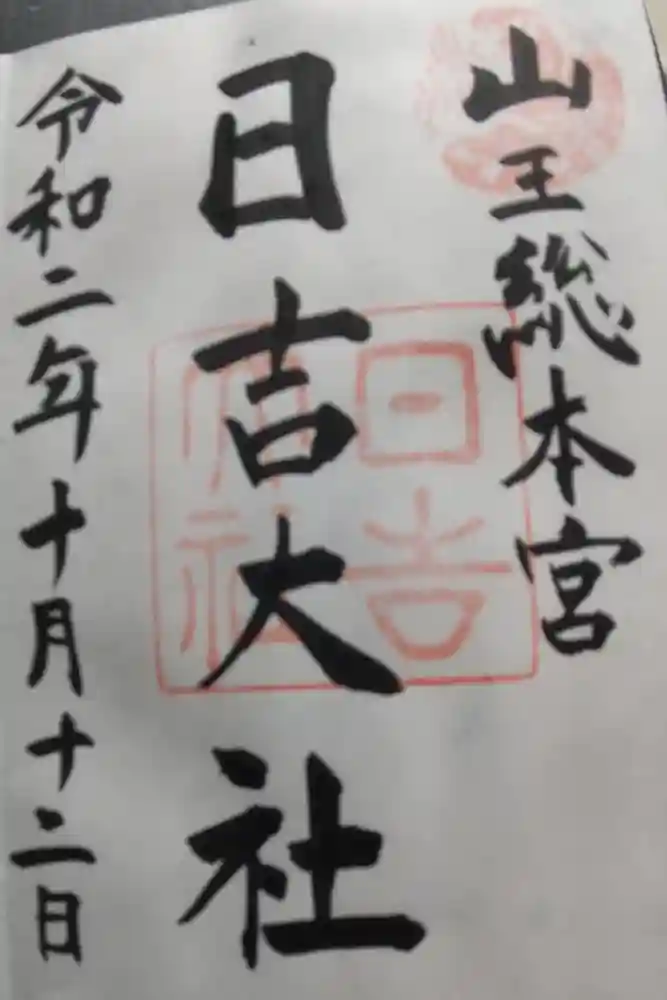 山王総本宮
日吉大社
日吉大社
令和二年十月十二日